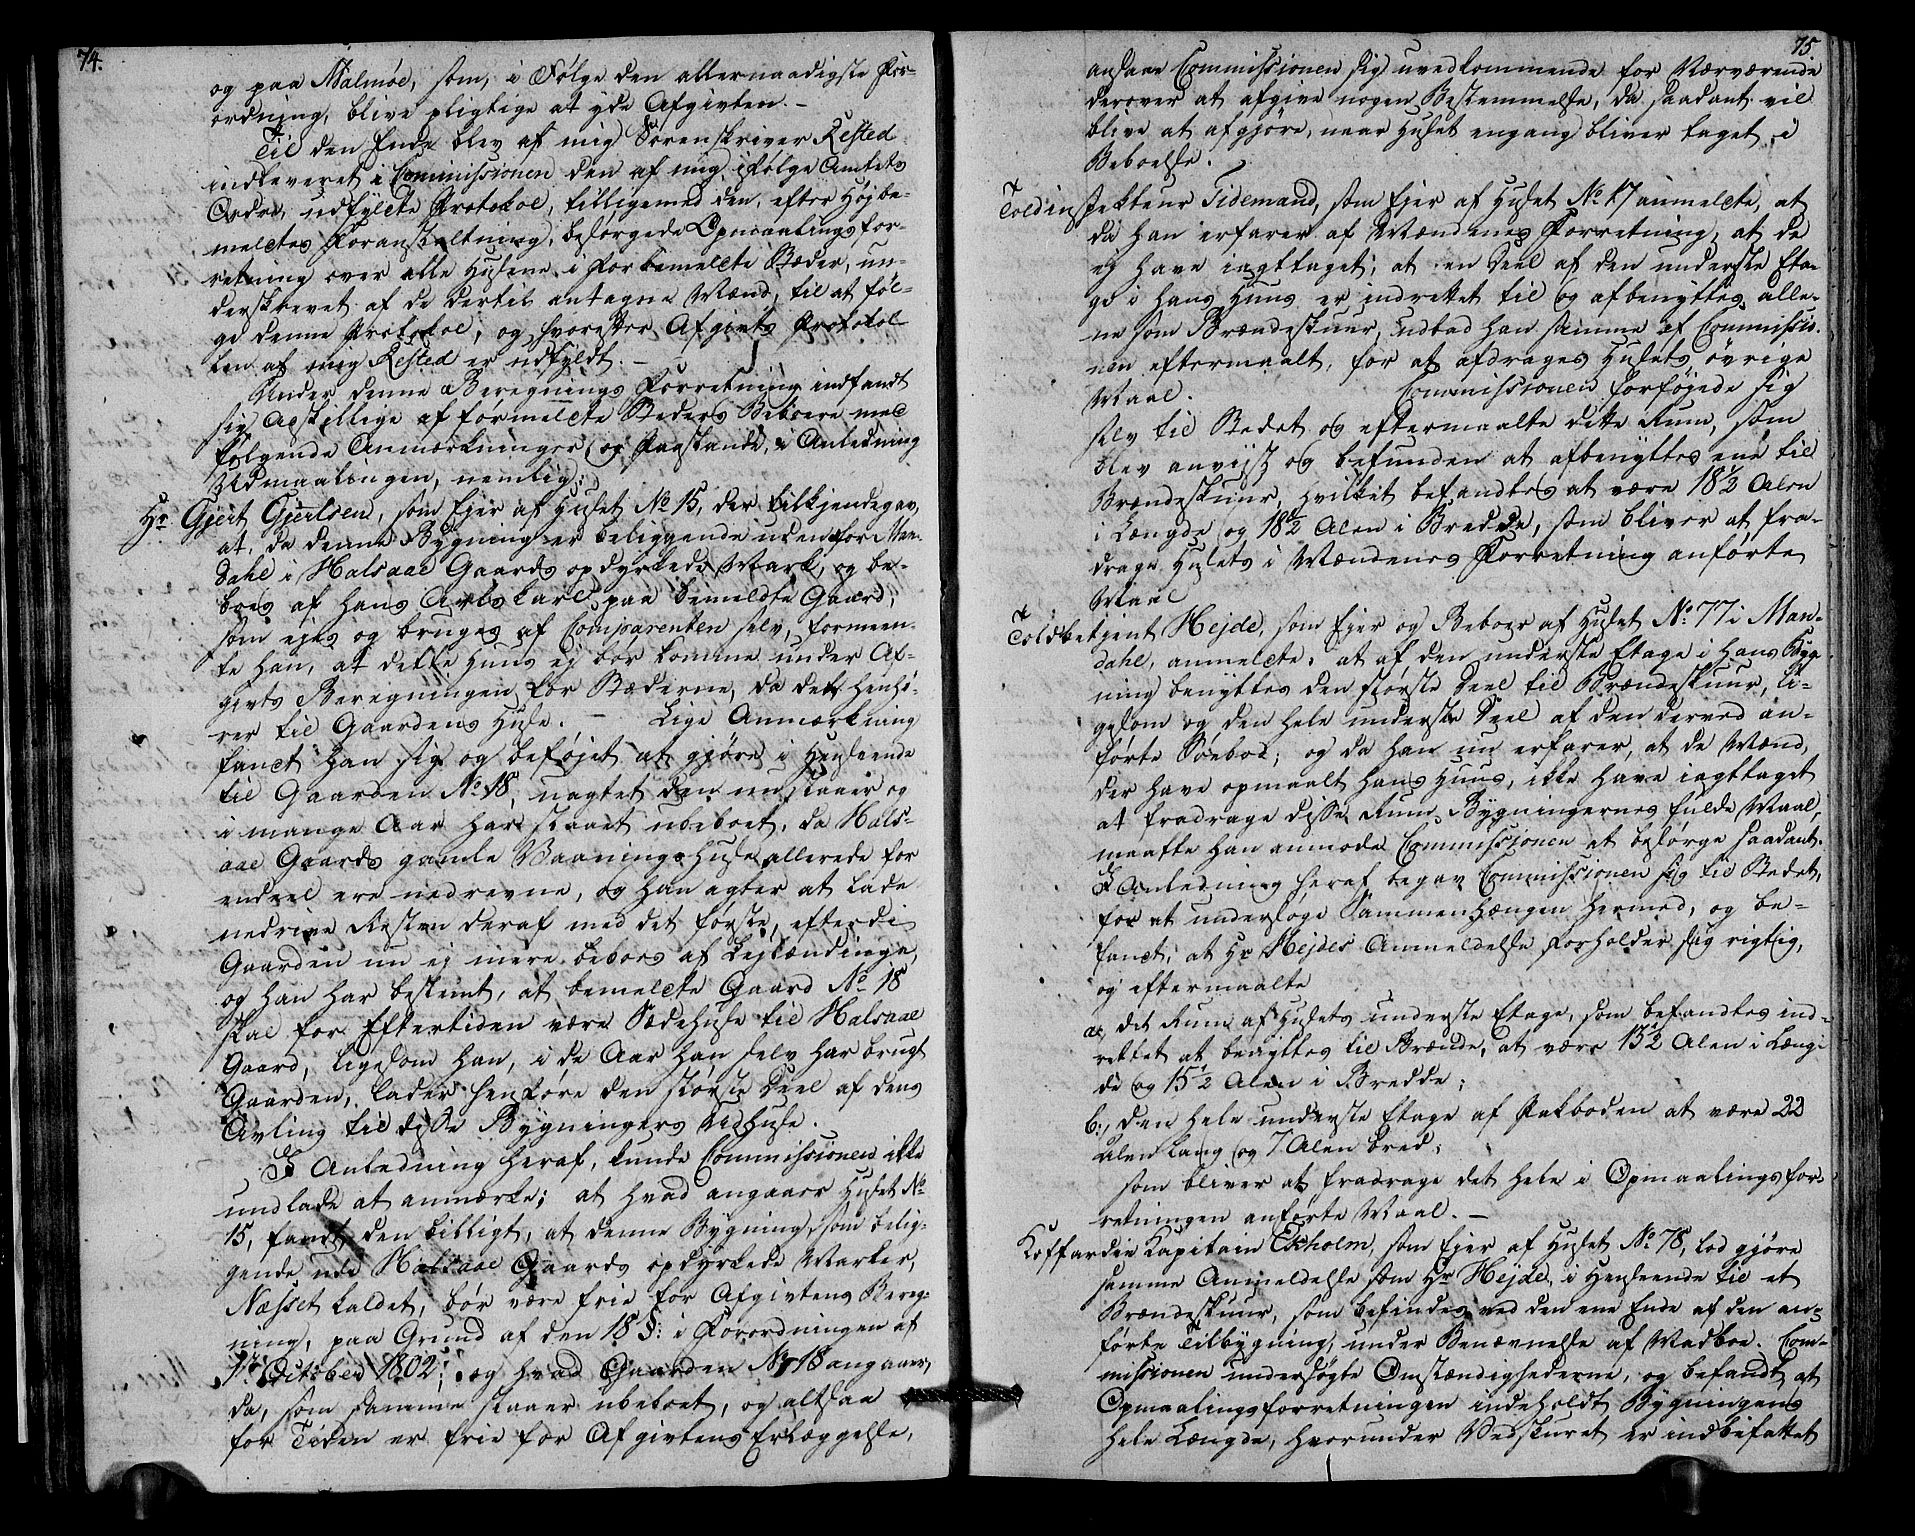 74.
og paa Malmøe, som, i Følge den allernaadigste For-
ordning, blive pligtige at yde Afgivten. -
Til den Ende blev af mig Sorenskriver Rested
indleveret i Commissionen den af mig, ifølge Amtets
Ordre, udfyldte Protokol, tilligemed den, efter Højbe-
meldtes Foranstaltning, besørgede Opmaalingsfor-
retning over alle Husene i forbemeldte Stæder, un-
derskrevet af de dertil antagne Mænd, til at føl-
ge denne Protokol, og hvorefter Afgivts Protokol-
len af mig Restad er udfyldt. -
Under denne Beregnings Forretning indfandt
sig adskillige af formeldte Steders Beboere med
følgende Anmærkninger og Paastande, i Anledning
Udmaalingen, nemlig:
Hr Gjert Gjertsen, som Ejer af Huset No 15, der tilkjendegav,
at, da denne Bygning er beliggende udenfor Man-
dahl i Halsaae Gaards opdyrkede Mark, og be-
boes af hans Avlskarl paa bemeldte Gaard,
som ejes og bruges af Comparenten selv, formeen-
te han, at dette Huus ej bør komme under Af-
givts Beregningen for Stæderne, da det henhø-
rer til Gaardens Huse. - Lige Anmærkning
fandt han sig og beføjet at gjøre i Henseende
til Gaarden No 18, uagtet den nu staaer og
i mange Aar har staaet ubeboet, da Hals-
aae Gaards gamle Vaaningshuse allerede for
endeel ere nedrevne, og han agter at lade
nedrive Resten deraf med det første, efterdi
Gaarden nu ej mere beboes af Lejlændinge,
og han har bestemt, at bemeldte Gaard No 18
skal for Eftertiden være Sædehuse til Halsaae
Gaard, ligesom han, i de Aar han selv har brugt
Gaarden, lader henføre den største Deel af dens
Avling til disse Bygningers Udhuse.
I Anledning heraf, kunde Commissionen ikke
undlade at anmærke; at hvad angaaer Huset No
15, fandt den billigt, at denne Bygning, som belig-
gende ude Halsaae Gaards opdyrkede Marker,
Næsset kaldet, bør være frie for Afgivtens Bereg-
ning, paa Grund af den 18 §: i Forordningen af
1te October 1802; og hvad Gaarden No 18 angaaer,
da, som samme staaer ubeboet, og altsaa
for Tiden er frie for Afgivtens Erlæggelse,
75
ansaae Commissionen sig uvedkommende for Nærværende
derover at afgive nogen Bestemmelse, da saadant vil
blive at afgjøre, naar Huset engang bliver taget i
Beboelse.
Toldinspekteur Tidemand, som Ejer af Huset No 17 anmeldte, at
da han erfarer af Mændenes Forretning, at de
ej have iagttaget; at en Deel af den underste Eta-
ge i hans Huus er indrettet til og afbenyttes alle-
ne som Brændeskuur, udbad han samme af Commissio-
nen eftermaalt, for at afdrages Husets øvrige
Maal. Commissionen forføjede sig
selv til Stedet og eftermaalte dette Rum, som
blev anviist og befunden at afbenyttes ene til
Brændeskuur, hvilket befandtes at være 18½ Alen
i Længde og 18½ Alen i Bredde, som bliver at fra-
drage Husets i Mændenes Forretning anførte
Maal
Toldbetjent Hejde, som Ejer og Beboer af Huset No 77 i Man-
dahl, anmeldte: at af den underste Etage i hans Byg-
ning benyttes den største Deel til Brændeskuur, li-
gesom og den hele underste Deel af den derved an-
førte Søebod; og da han nu erfarer, at de Mænd,
der have opmaalt hans Huus, ikke have iagttaget
at fradrage disse Rum Bygningernes fulde Maal,
maatte han anmode Commissionen at besørge saadant.
I Anledning heraf begav Commissionen sig til Stedet,
for at undersøge Sammenhængen hermed, og be-
fandt, at Hr Hejdes Anmeldelse forholder sig rigtig,
og eftermaalte
a, det Rum af Husets underste Etage, som befandtes ind-
rettet at benyttes til Brænde, at være 13½ Alen i Læng-
de og 15½ Alen i Bredde;
b:, den hele underste Etage af Pakboden at være 22
Alen lang og 7 Alen bred;
som bliver at fradrage det hele i Opmaalingsfor-
retningen anførte Maal. -
Koffardie Kapitain Ekholm, som Ejer af Huset No 78, lod gjøre
samme Anmeldelse som Hr Hejde, i Henseende til et
Brændeskuur, som befindes ved den ene Ende af den an-
førte Tilbygning, under Benævnelse af Madboe. Com-
missionen undersøgte Omstændighederne, og befandt, at
Opmaalingsforretningen indeholdt Bygningens
hele Længde, hvorunder Vedskuret er indbefattet